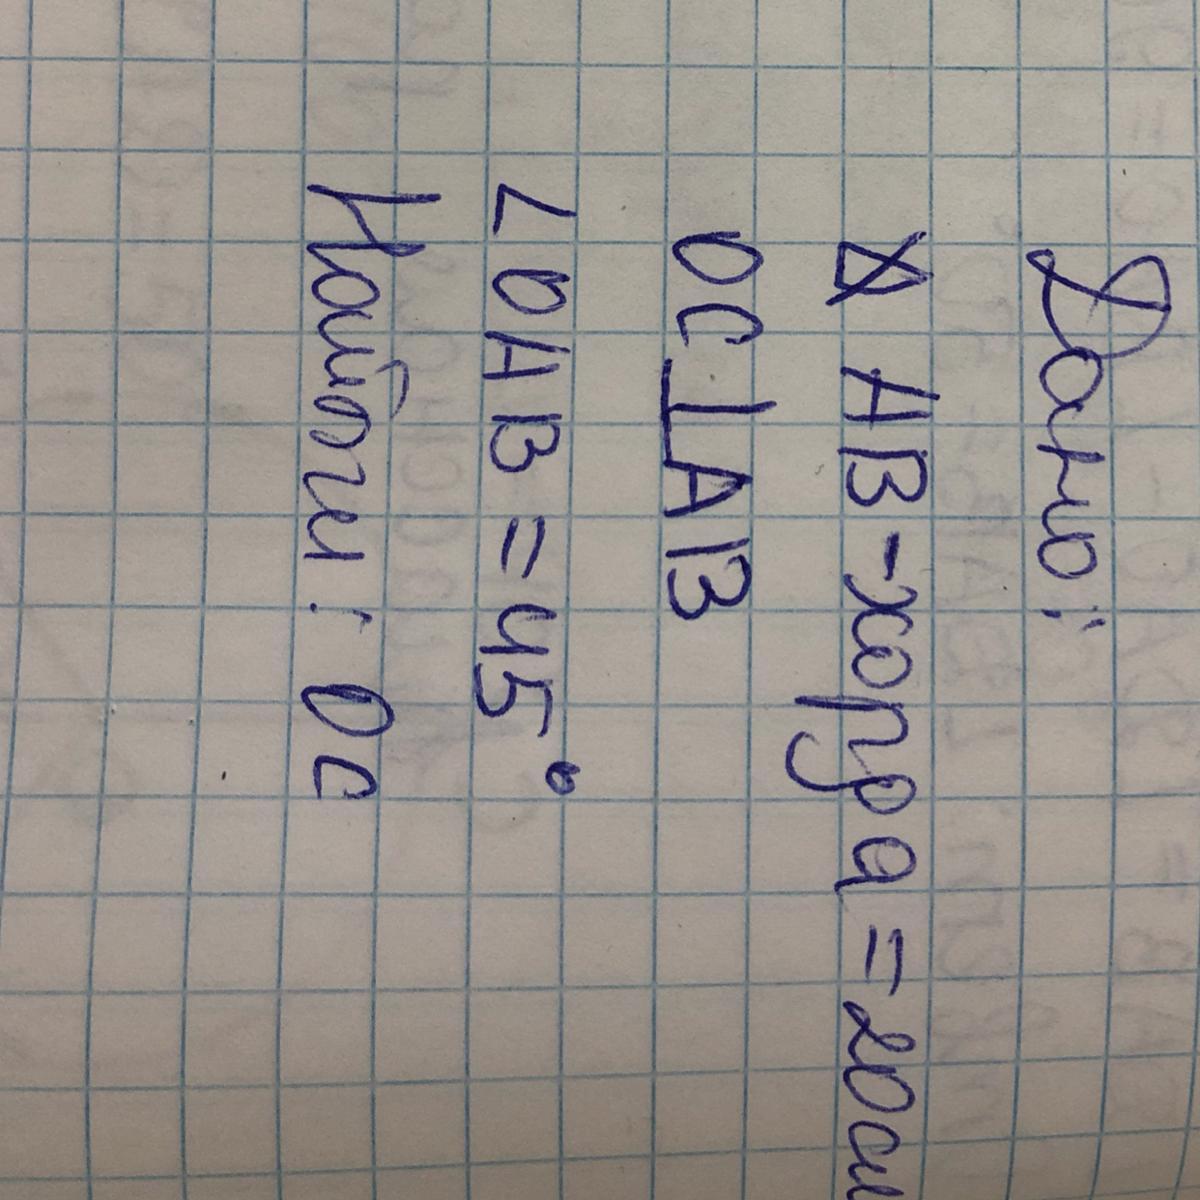 Дано:
AB-хорда=20см
OC⊥AB
∠OAB=45°
Найти: OC